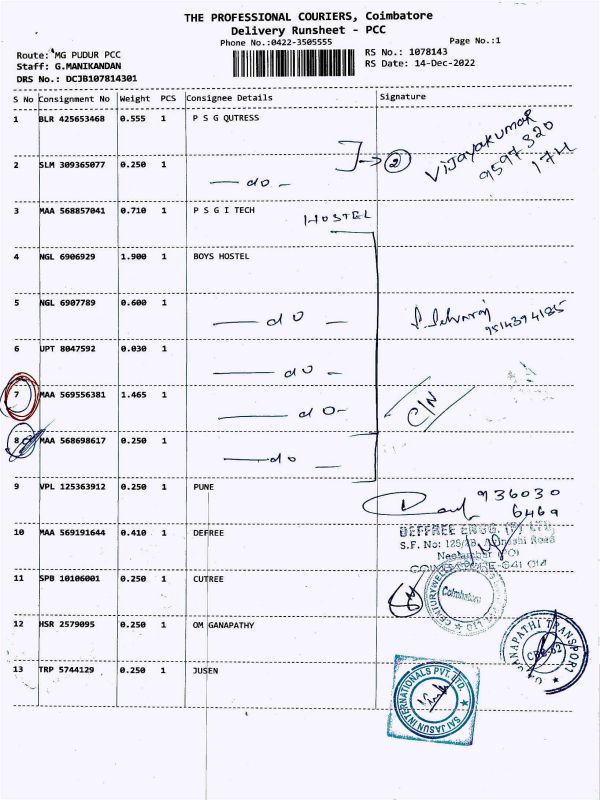 THE PROFESSIONAL COURIERS, Coimbatore
Delivery Runsheet - PCC
Phone No.:0422-3505555
Page No.:1
Route: MG PUDUR PCC
RS No.: 1078143
Staff: G.MANIKANDAN
RS Date: 14-Dec-2022
DRS No.: DCJB107814301
S No Consignment No Weight PCS Consignee Details Signature
1 BLR 425653468 0.555 1 P S G QUTRESS
Vijayakumar
9597320
174
2 SLM 309365077 0.250 1
→ 2
— do —
3 MAA 568857041 0.710 1 P S G I TECH
HOSTEL
4 NGL 6906929 1.900 1 BOYS HOSTEL
5 NGL 6907789 0.600 1
— do —
9514394185
6 UPT 8047592 0.030 1
— do —
7 MAA 569556381 1.465 1
— do —
C/N
8 MAA 568698617 0.250 1
— do
9 VPL 125363912 0.250 1 PUNE
936030
6469
10 MAA 569191644 0.410 1 DEFREE
DEFFREE ENGG. (P) LTD
S.F. No: 125/4B, Road
COIMBATORE-641 014
11 SPB 10106001 0.250 1 CUTREE
Coimbatore
12 HSR 2579095 0.250 1 OM GANAPATHY
GANAPATHI TRANSPORT
CBE-62
13 TRP 5744129 0.250 1 JUSEN
SAI JASUN INTERNATIONALS PVT. LTD.